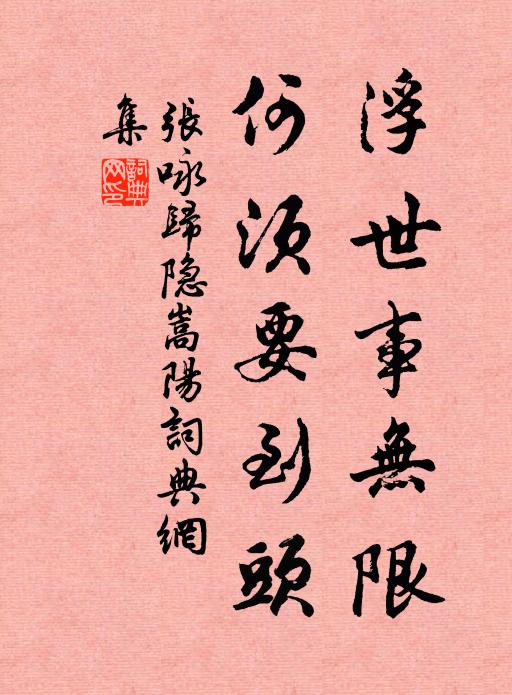 浮世事無限
何須要到頭
張咏歸隐嵩陽詞典網
集
詞典
网印